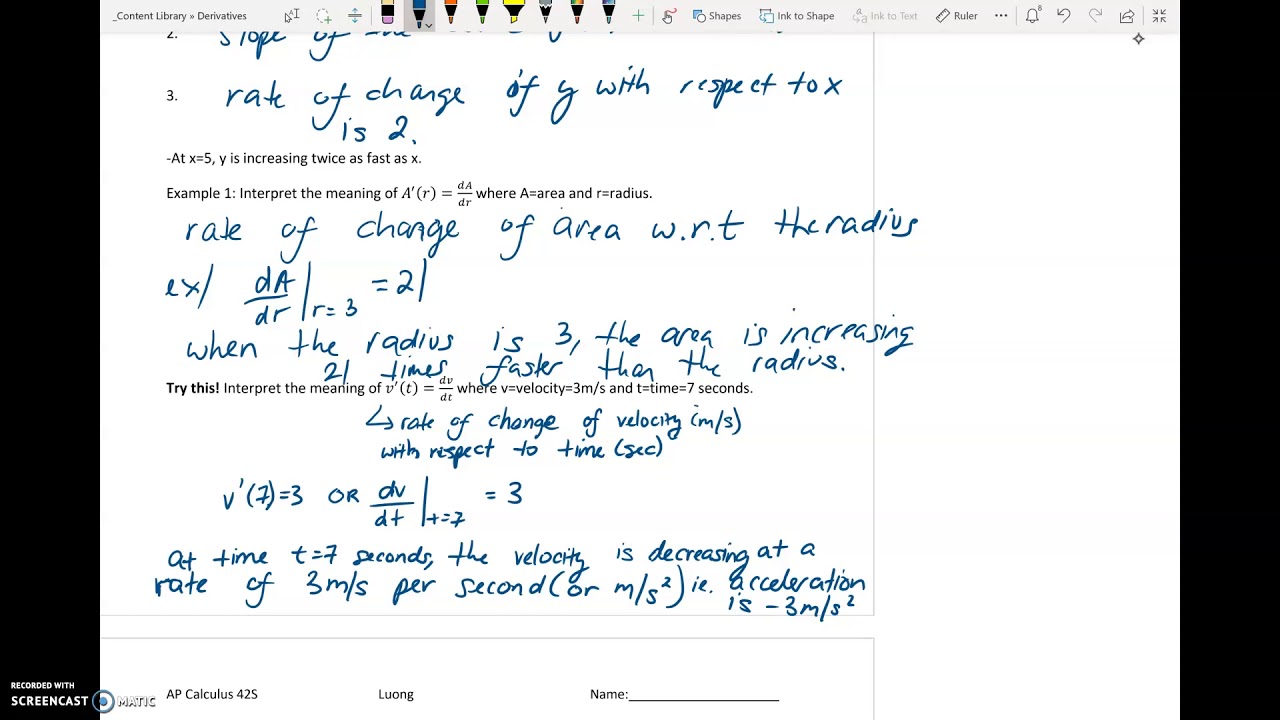 _Content Library » Derivatives
Shapes
Ink to Shape
Ink to Text
Ruler
8
2. slope of the
3. rate of change of y with respect to x
is 2.
-At x=5, y is increasing twice as fast as x.
Example 1: Interpret the meaning of A′(r) = dA/dr where A=area and r=radius.
rate of change of area w.r.t the radius
ex/ dA/dr | r=3 = 21
when the radius is 3, the area is increasing
21 times faster than the radius.
Try this! Interpret the meaning of v′(t) = dv/dt where v=velocity=3m/s and t=time=7 seconds.
↳ rate of change of velocity (m/s)
with respect to time (sec)
v'(7)=3 OR dv/dt | t=7 = 3
at time t=7 seconds, the velocity is decreasing at a
rate of 3m/s per second (or m/s²) ie. acceleration
is -3m/s²
RECORDED WITH
SCREENCAST MATIC
AP Calculus 42S Luong Name: